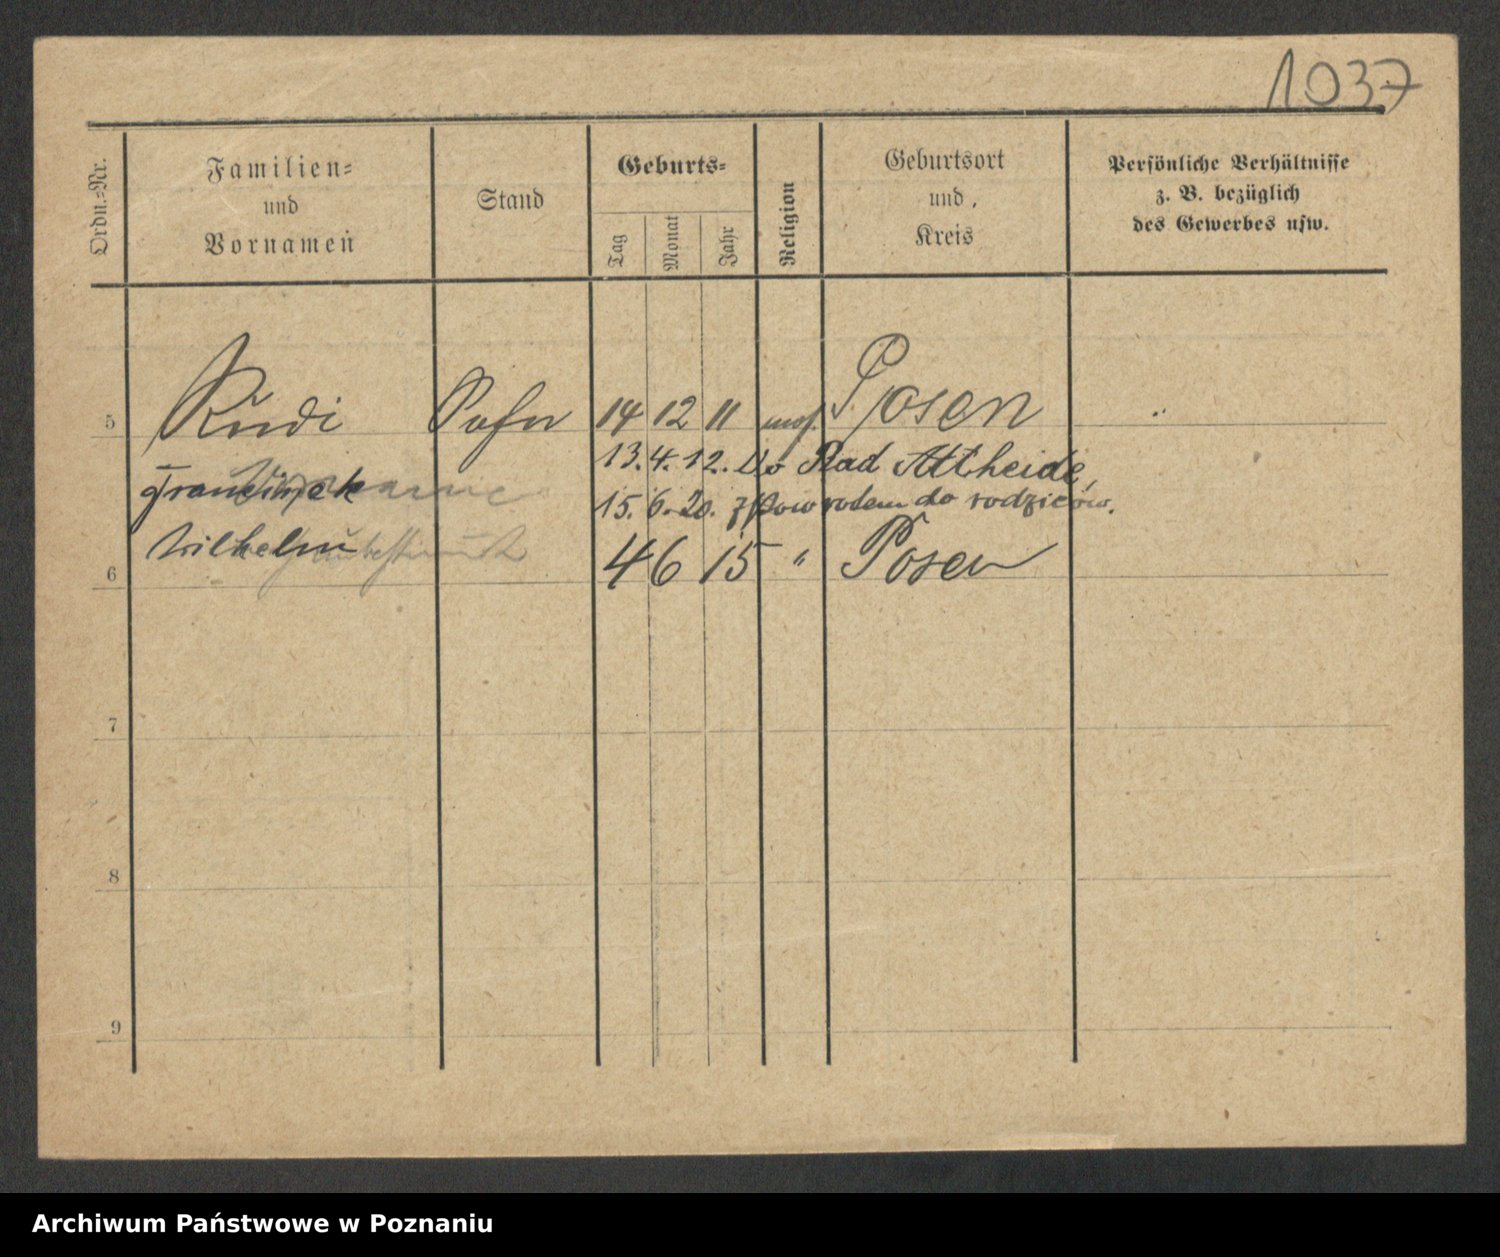 1037
Ordn.=Nr.
Familien=
und
Vornamen
Stand
Geburts=
Tag
Monat
Jahr
Religion
Geburtsort
und
Kreis
Persönliche Verhältnisse
z. B. bezüglich
des Gewerbes usw.
5 Rudi Sohn 14 12 11 mos. Posen "
13. 4. 12. Do Bad Altheide,
Franciszek 15. 6. 20. z powrotem do rodziców.
6 Wilhelm 4 6 15 " Posen
7
8
9
Archiwum Państwowe w Poznaniu